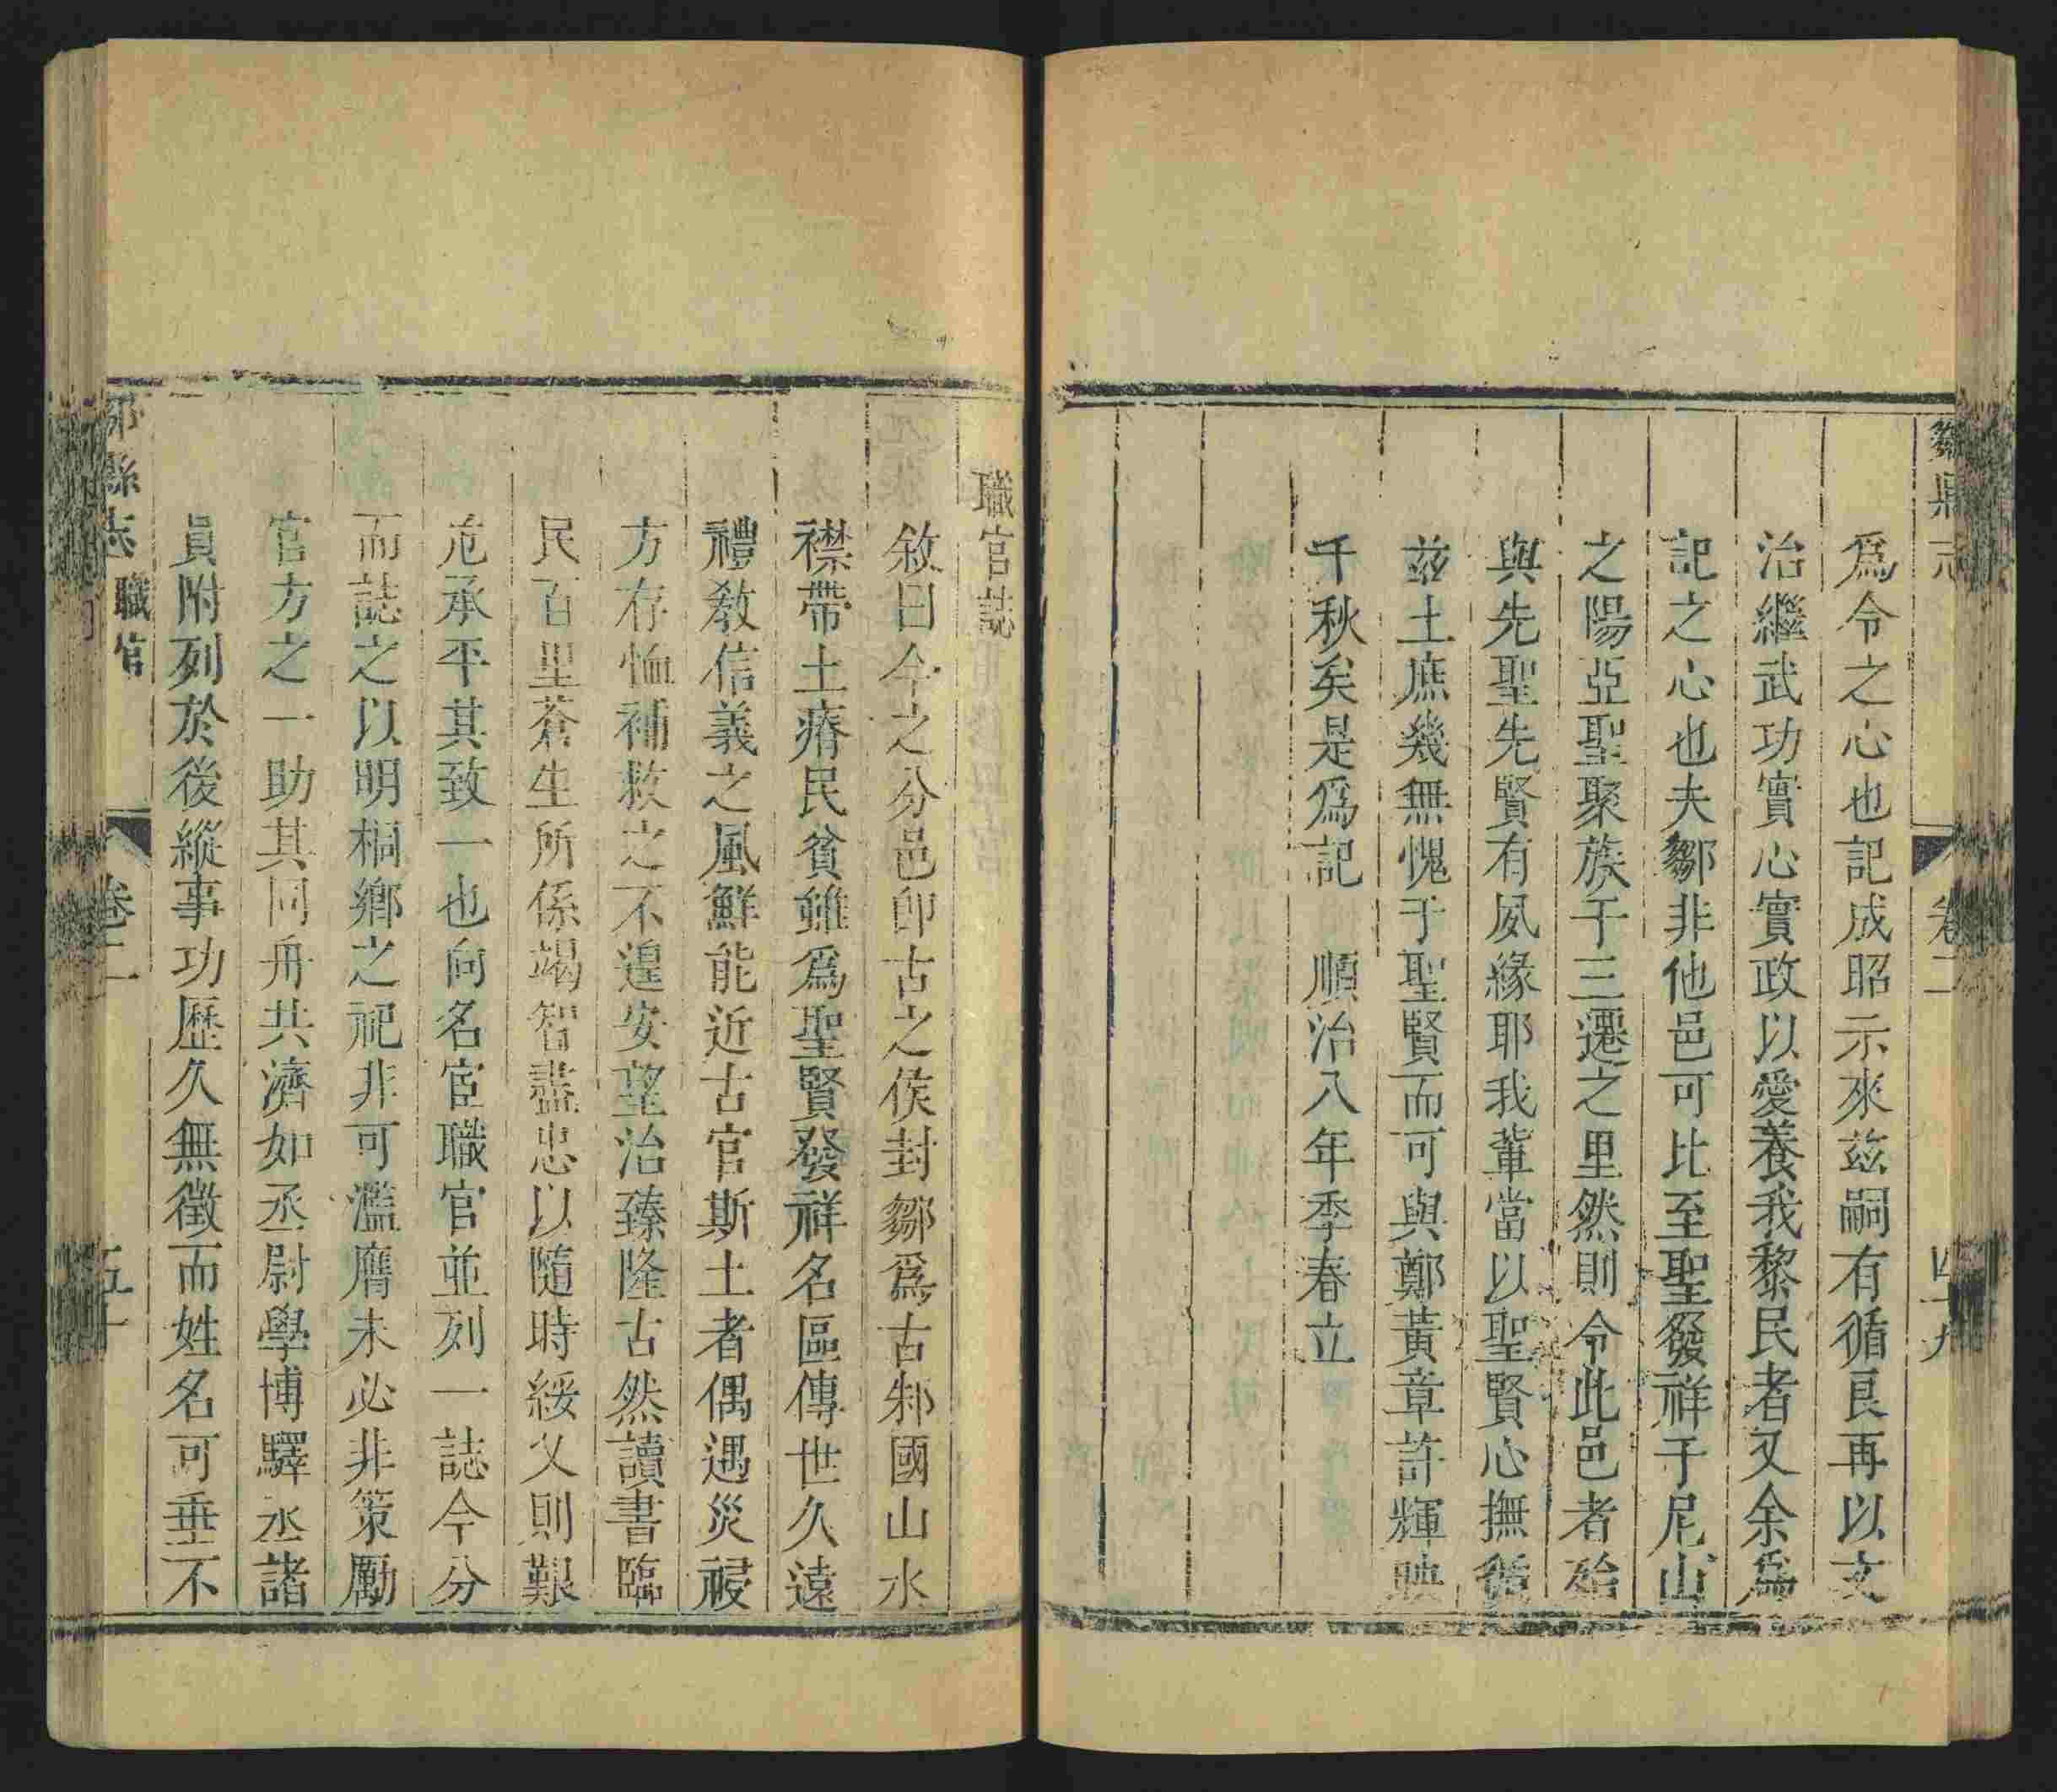 鄒縣志
卷二
四十九
爲令之心也記成昭示來兹嗣有循良再以文
治繼武功實心實政以愛養我黎民者又余爲
記之心也夫鄒非他邑可比至聖發祥于尼山
之陽亞聖聚族于三遷之里然則令此邑者殆
與先聖先賢有夙緣耶我輩當以聖賢心撫循
兹土庶幾無愧于聖賢而可與鄭黃章許輝映
千秋矣是爲記　順治八年季春立
職官誌
敘曰今之分邑卽古之侯封鄒爲古邾國山水
襟帶土瘠民貧雖爲聖賢發祥名區傳世久遠
禮教信義之風鮮能近古官斯土者偶遇災祲
方存恤補救之不遑安望治臻隆古然讀書臨
民百里蒼生所係竭智盡忠以隨時綏乂則艱
危承平其致一也向名宦職官並列一誌今分
而誌之以明桐鄉之祀非可濫膺未必非策勵
官方之一助其同舟共濟如丞尉學博驛丞諸
員附列於後縱事功歷久無徵而姓名可垂不
鄒縣志
職官
卷二
五十